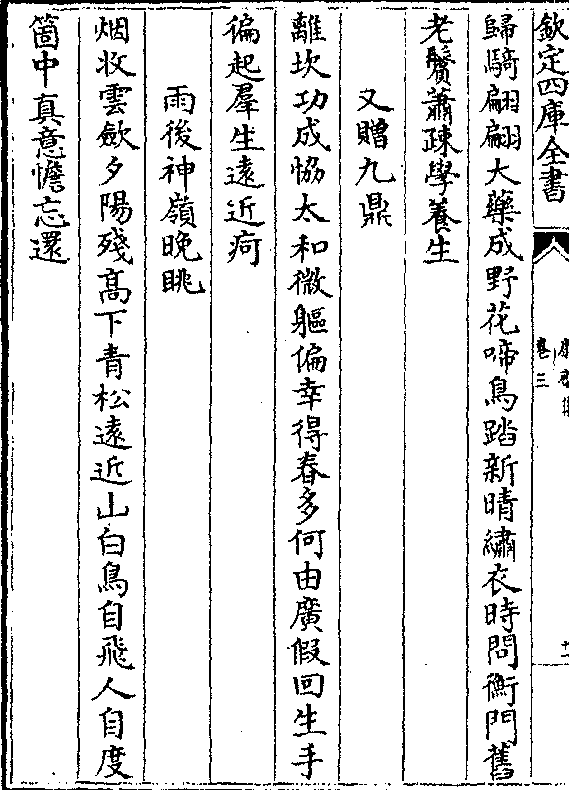 欽定四庫全書
卷三
歸騎翩翩大藥成野花啼鳥踏新晴繡衣時問衡門舊
老鬢蕭疎學養生
又贈九鼎
離坎功成恊太和微軀偏幸得春多何由廣假回生手
徧起羣生遠近疴
雨後神嶺晚眺
烟收雲歛夕陽殘髙下青松遠近山白鳥自飛人自度
箇中真意憺忘還